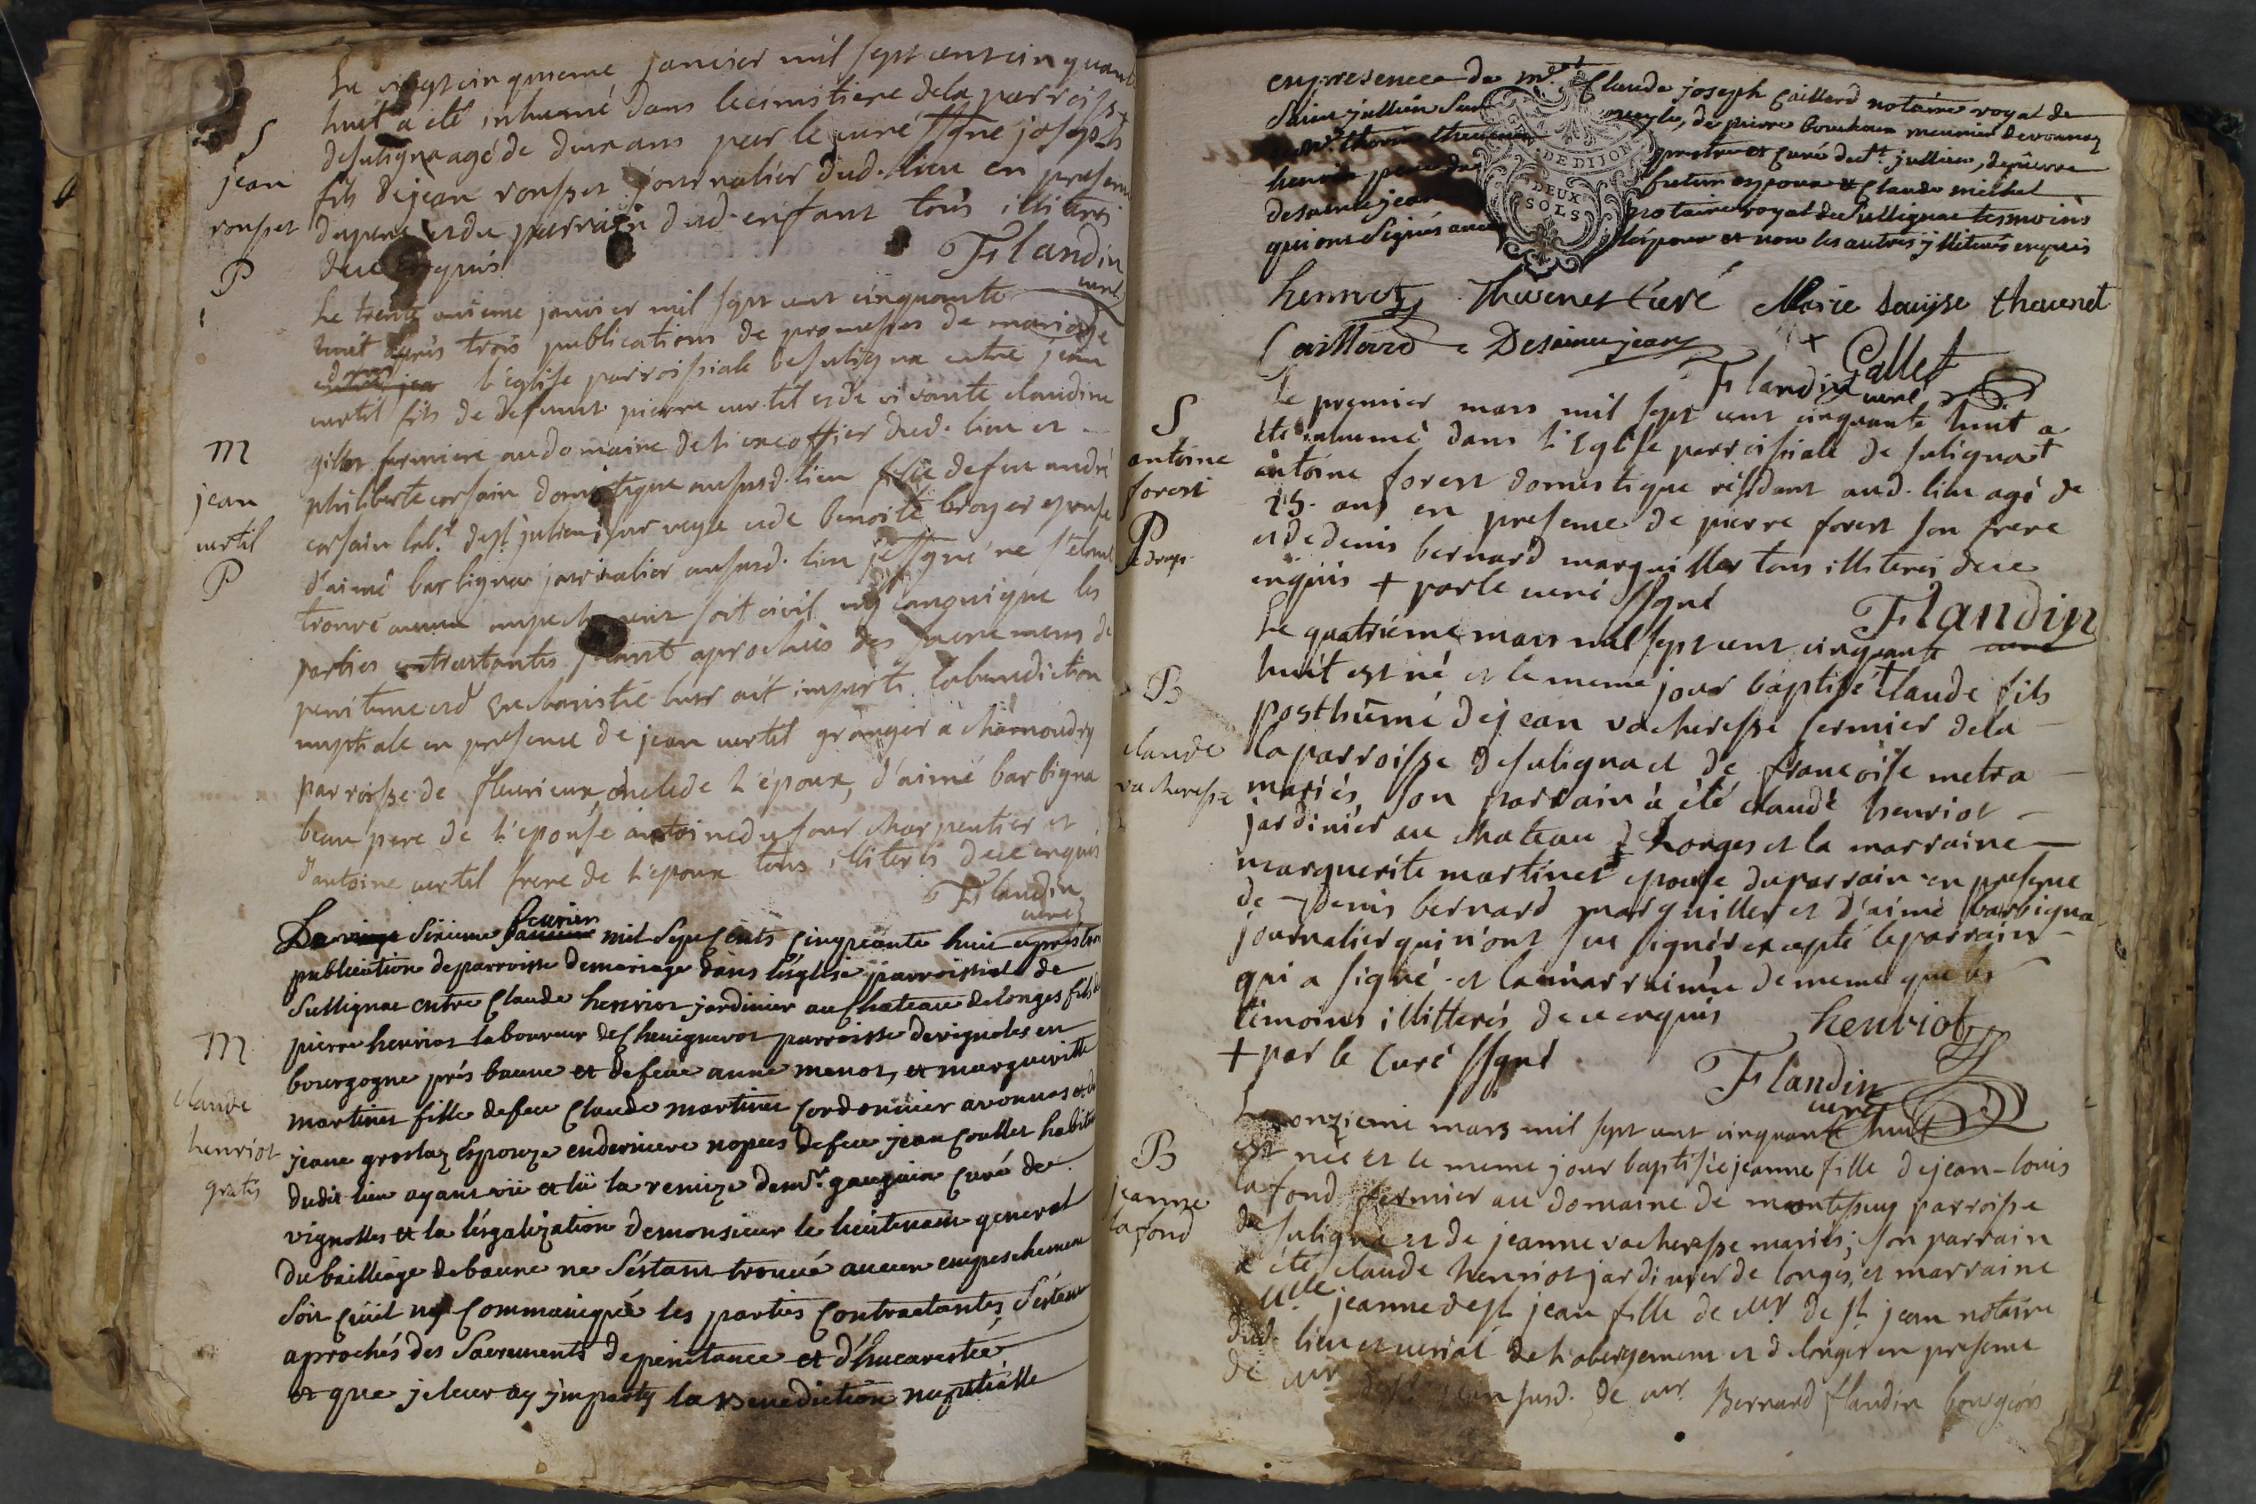 Le vingt cinquieme janvier mil sept cent cinquante
huit a été inhumé dans le cimetiere dela parroisse
desulignaagé de deux ans par le curé ssgné joseph
fils dejean rousset journalier dud. lieu en presence
dupere et du parrain dud. enfant tous illiterés
dece enquis
Flandin
curé
S
jean
rousset
P
Le trente unieme janvier mil sept cent cinquante
huit après trois publications de promesses de mariage
l'eglise parroissiale desuligna entre jean
curtil fils de defunt pierre curtil et de vivante claudine
gillet fermiere au domaine de dud. lieu et
philiberte corsain domestique aususd. lieu fille defeu andré
corsain lab.r dest julien sur veyle et de benoite broyer epouse
d'aimé barbigna journalier aususd. lieu je ssgné ne s'etant
trouvé aucun empechement soit civil ny canonique les
parties contractantes s'etant aprochées des sacremens de
penitence et d'eucharistie leur ait imparti la benediction
nuptiale en presence de jean curtil granger a charnoudry
parroisse de fleurieux, oncle de l'époux, d'aimé barbigna
beau pere de l'epouse antoine dufour charpentier et
d'antoine curtil frere de l'epoux tous illiterés dece enquis
Flandin
curé
M
jean
curtil
P
Le vingt sixieme fevrier mil sept cents cinquante huit apres trois
publication deparroisse demariage dans l'eglise parroissiale de
Sullignat entre Claude henriot jardinier au Chateau delonges fils de
pierre henriot laboureur de Cheuignerot parroisse devignoles en
bourgogne prés baune et defeue anne menot, et marguerite
martinet fille defeu Claude martinet Cordonnier avonnas et de
jeane groslaz Espouze enderniere nopces defeu jean Coullet habitant
dudit lieu ayant vü et lü la remize demr. gauguin Curé de
vignolles et la légalization demonsieur le lieutenant general
Dubailliage debaune ne S'éstant trouué aucun empeschement
Soit Ciuil ny Commanique les parties Contractantes S'éstant
aprochés des Sacrements depenitance et d'hucarestie
et que jeleur ay jmparty la Benediction nuptialle
M
claude
henriot
gratis
enpresence de Claude joseph Caillard notaire royal de
Saint jullien Sur veyle, de pierre meunier devonnas
prestre et Curé de st. jullien, depierre
henriot pere du futur espoux et Claude michel
desaintjean notaire royal de Sullignat tesmoins
qui ont Signés avec l'espoux et non les autres jlliterés enquis
GEN. DE DIJON
DEUX SOLS
henriot Theuenet Curé Marie Louise theuenet
Caillard Desaintjean Gallet
Flandin curé
Le premier mars mil sept cent cinquante huit a
été inhumé dans l'Eglise parroissiale de sulignat
antoine forest domestique résidant aud. lieu agé de
25. ans en presence de pierre forest son frere
et dedenis bernard marguiller tous illiterés dece
enquis + par le curé ssgné
Flandin
curé
S
antoine
forest
P
Le quatrieme mars mil sept cent cinquante
huit est né et le meme jour baptisé + Claude fils
posthume dejean vacheresse fermier dela
la parroisse desulignaet de françoise metra
mariés son parrain a été claude henriot
jardinier au chateau de longes et la marraine
marguerite martinet epouse duparrain en presence
de denis bernard marguiller et d'aimé barbigna
journalier qui n'ont sçu signer excepté leparrain
qui a signé et la marraine de meme que les
témoins illitterés de ce enquis
+ par le Curé ssgné
henriot
Flandin
curé
B
claude
vacheresse
Le onzieme mars mil sept cent cinquante huit
est née et le meme jour baptisée jeanne fille dejean-louis
lafond fermier au domaine de montessuy parroisse
de suligna et de jeanne vacheresse mariés; son parrain
a été claude henriot jardinier de longes, et marraine
Mlle jeanne dest jean fille de Mr. de st jean notaire
dud. lieu et de l'abergement et de longes en presence
de mr. dest jean susd. de mr. Bernard flandin bourgeois
B
jeanne
lafond